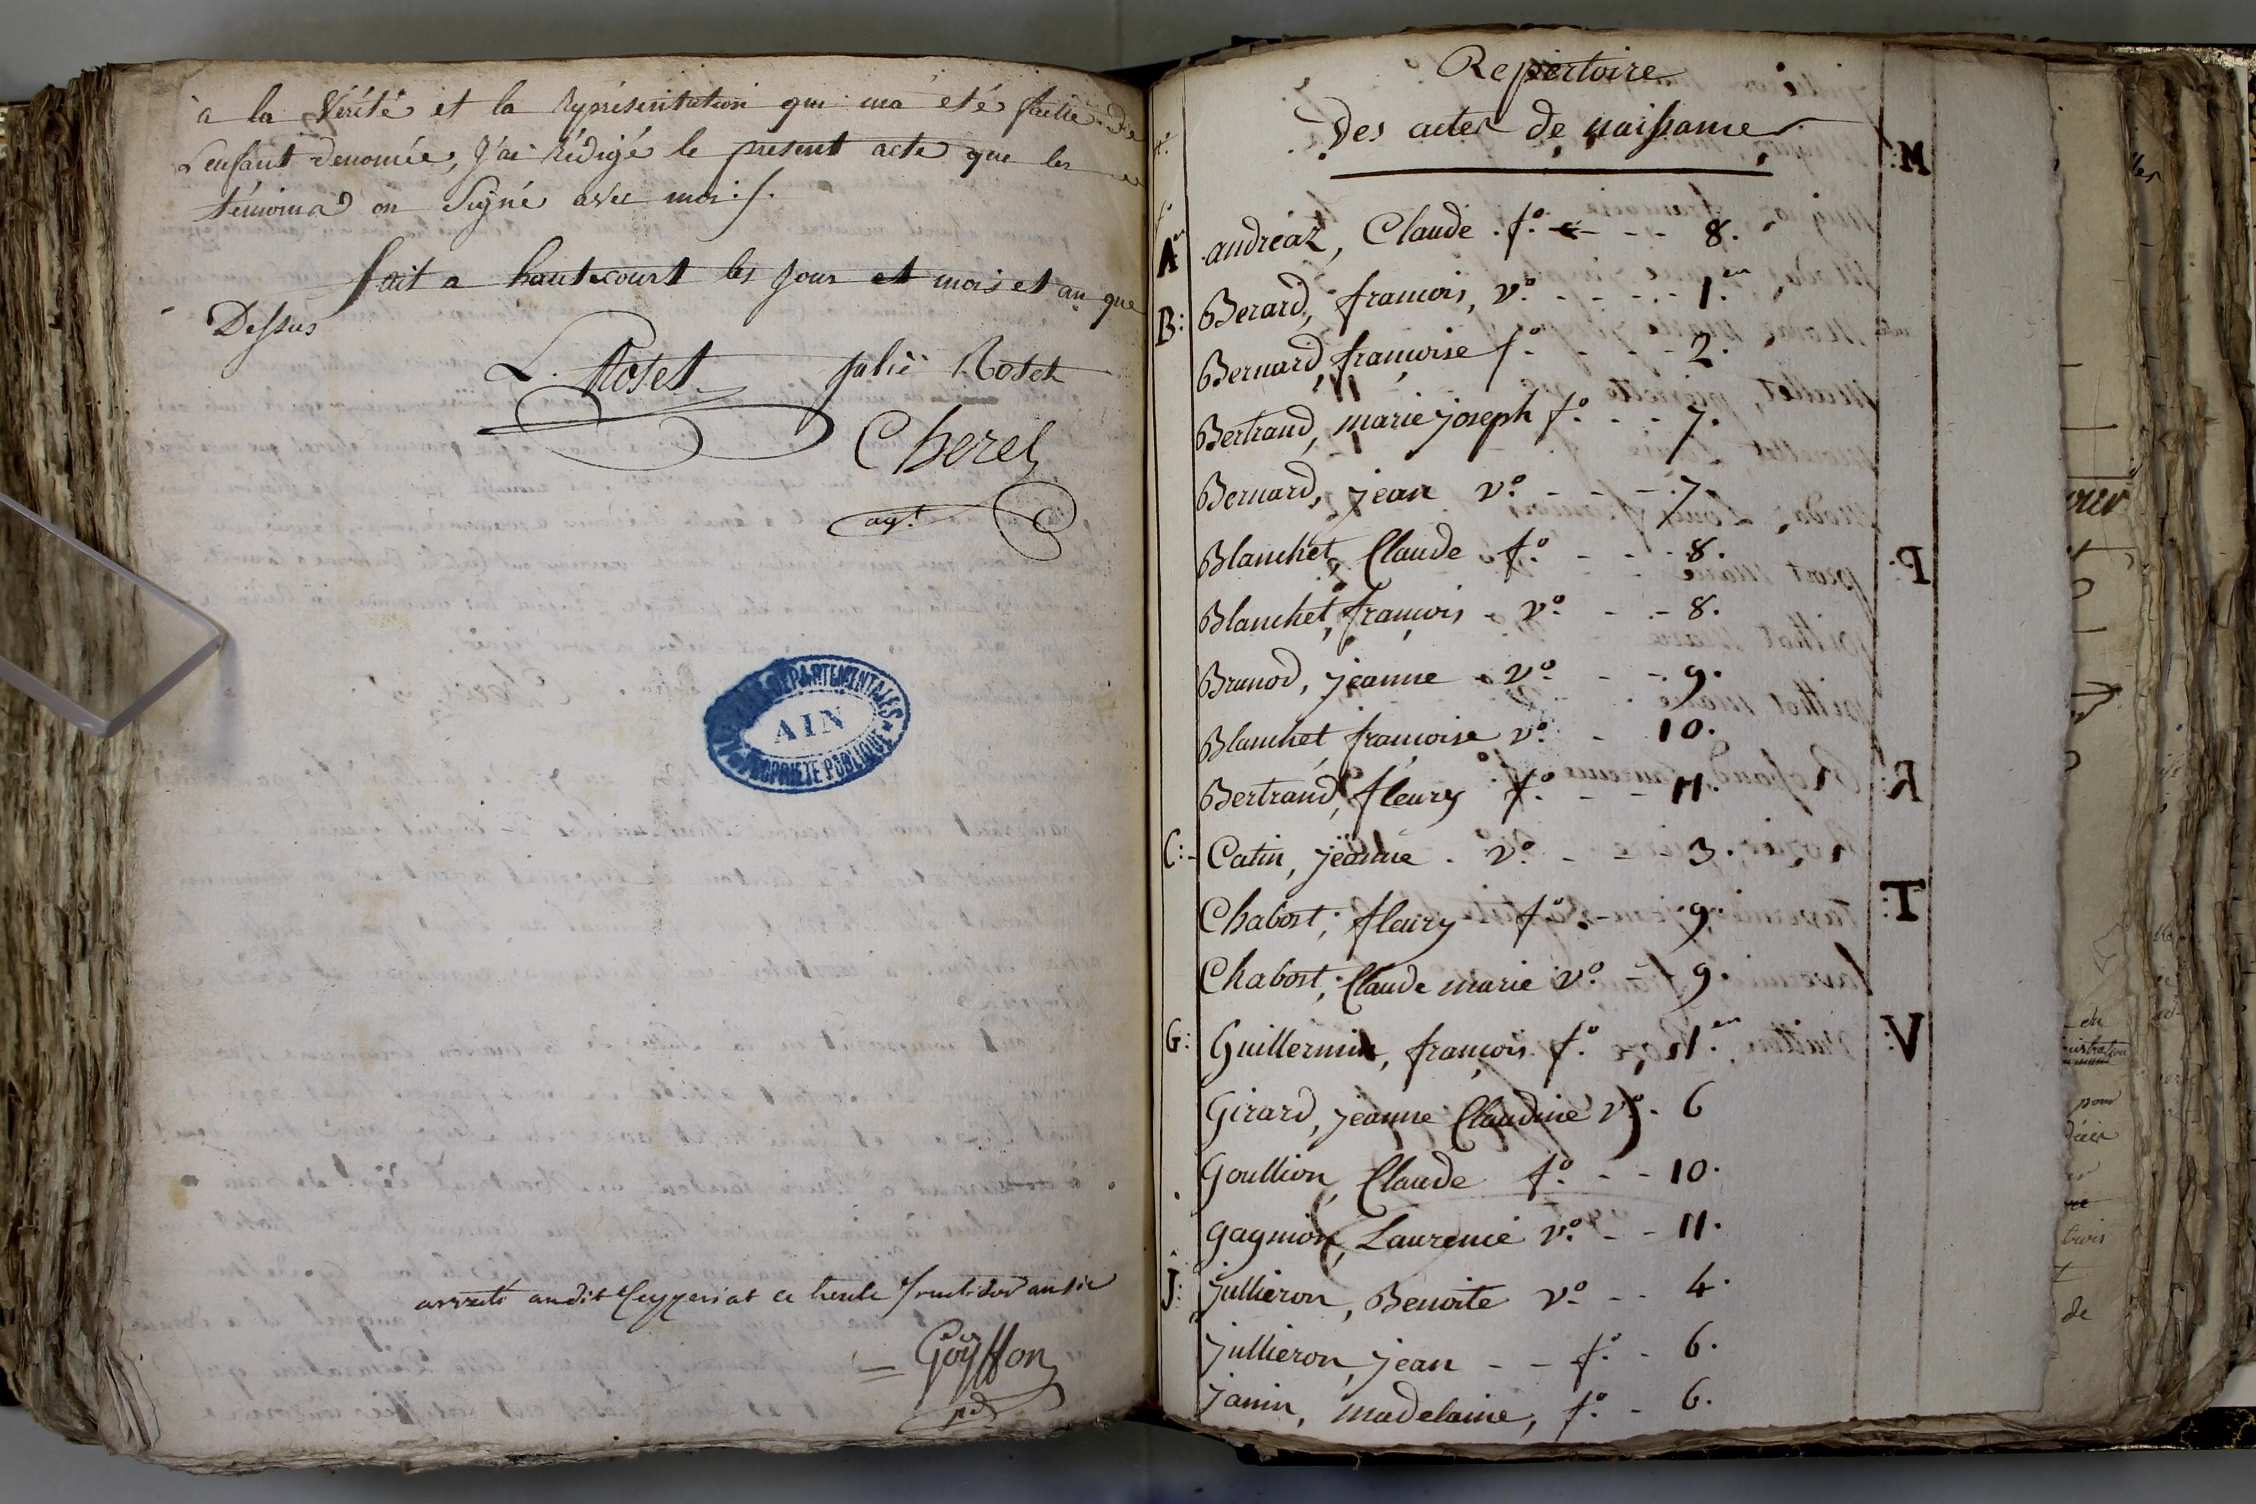 à la Vérité et la représentation qui ma été faitte de
L'enfant denomée, J'ai rédigé le present acte que les
témoins on Signé avec moi :/.
fait a hautecourt les Jour et mois et an que
Dessus
L. Rosset Julie Roset
Cherel
agt.
ARCHIVES DÉPARTEMENTALES
AIN
PROPRIÉTÉ PUBLIQUE
arreté audit Ceyzeriat ce trente fructidor an six
Goyffon
pdt
Repertoire
Des actes de naissance
A andréaz, Claude . f.o - - 8.
B: Berard, francois, v.o - - - - 1.er
Bernard, francoise f.o - - - 2.
Bertrand, marie joseph f.o - - 7.
Bernard, jean v.o - - - 7.
Blanchet, Claude f.o - - - 8.
Blanchet, françois - v.o - - 8.
Brunod, jeanne - v.o - - 9.
Blanchet francoise v.o - 10.
Bertrand, fleury f.o - - 11.
C: Catin, jeanne . v.o - - - 3.
Chabost, fleury f.o 9.
Chabost, Claude marie v.o 9.
G: Guillermin, françois f.o 1.er
Girard, jeanne Claudine v.o - 6
Goullion, Claude f.o - - 10.
gagnion, Laurence v.o - - 11.
J: jullieron, Benoite v.o - - 4.
jullieron, jean - - f.o - 6.
janin, madelaine, f.o - 6.
M:
P:
R:
T:
V: